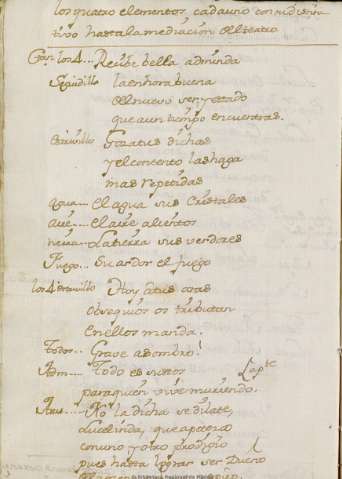 los quatro elementos, cada uno con su distin
tivo hasta la mediacion del teatro
Can. los 4... Recibe bella adminda
Seguidillo la enhorabuena
del nuevo
que a un tiempo encuentras.
Estrivillo Goza tus dichas
y el contento las haga
mas repetidas
Agua... El agua sus cristales
aire... El aire alientos
La tierra sus verdores
Fuego... Su ardor el fuego
los 4 estrivillo Hoy a tus aras
obsequios os tributan
en ellos manda.
Todos... Grave asombro!
Adm... Todo es sustos
para quien vive muriendo.
No la dicha se dilate,
Lucelinda, que apenas
con uno y otro prodigio
pues hasta lograr ser Dueño